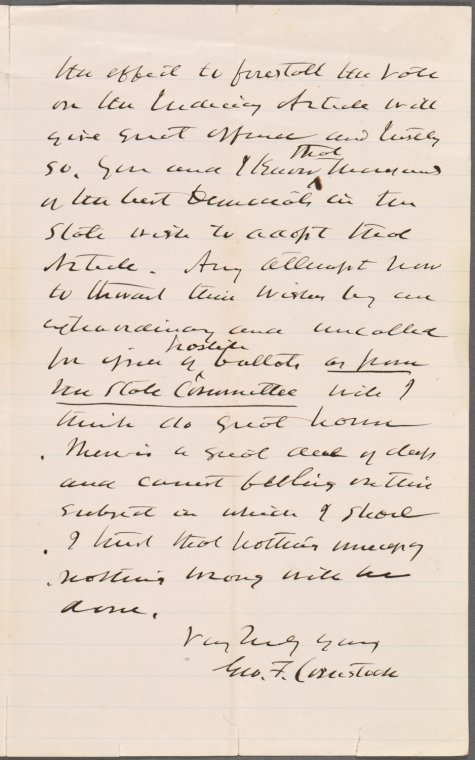 the effort to forestall the vote
on the Judiciary Article will
give great offence and justly
so. You and I know that thousands
of the best Democrats in the
State wish to adopt that
Article. Any attempt now
to thwart their wishes by an
extraordinary and uncalled
for issue of hostile ballots as from
the State Committee will I
think do great harm
There is a great deal of deep
and earnest feeling on this
subject in which I share
I trust that nothing
nothing wrong will be
done.
Very truly yours
Geo. F. Comstock